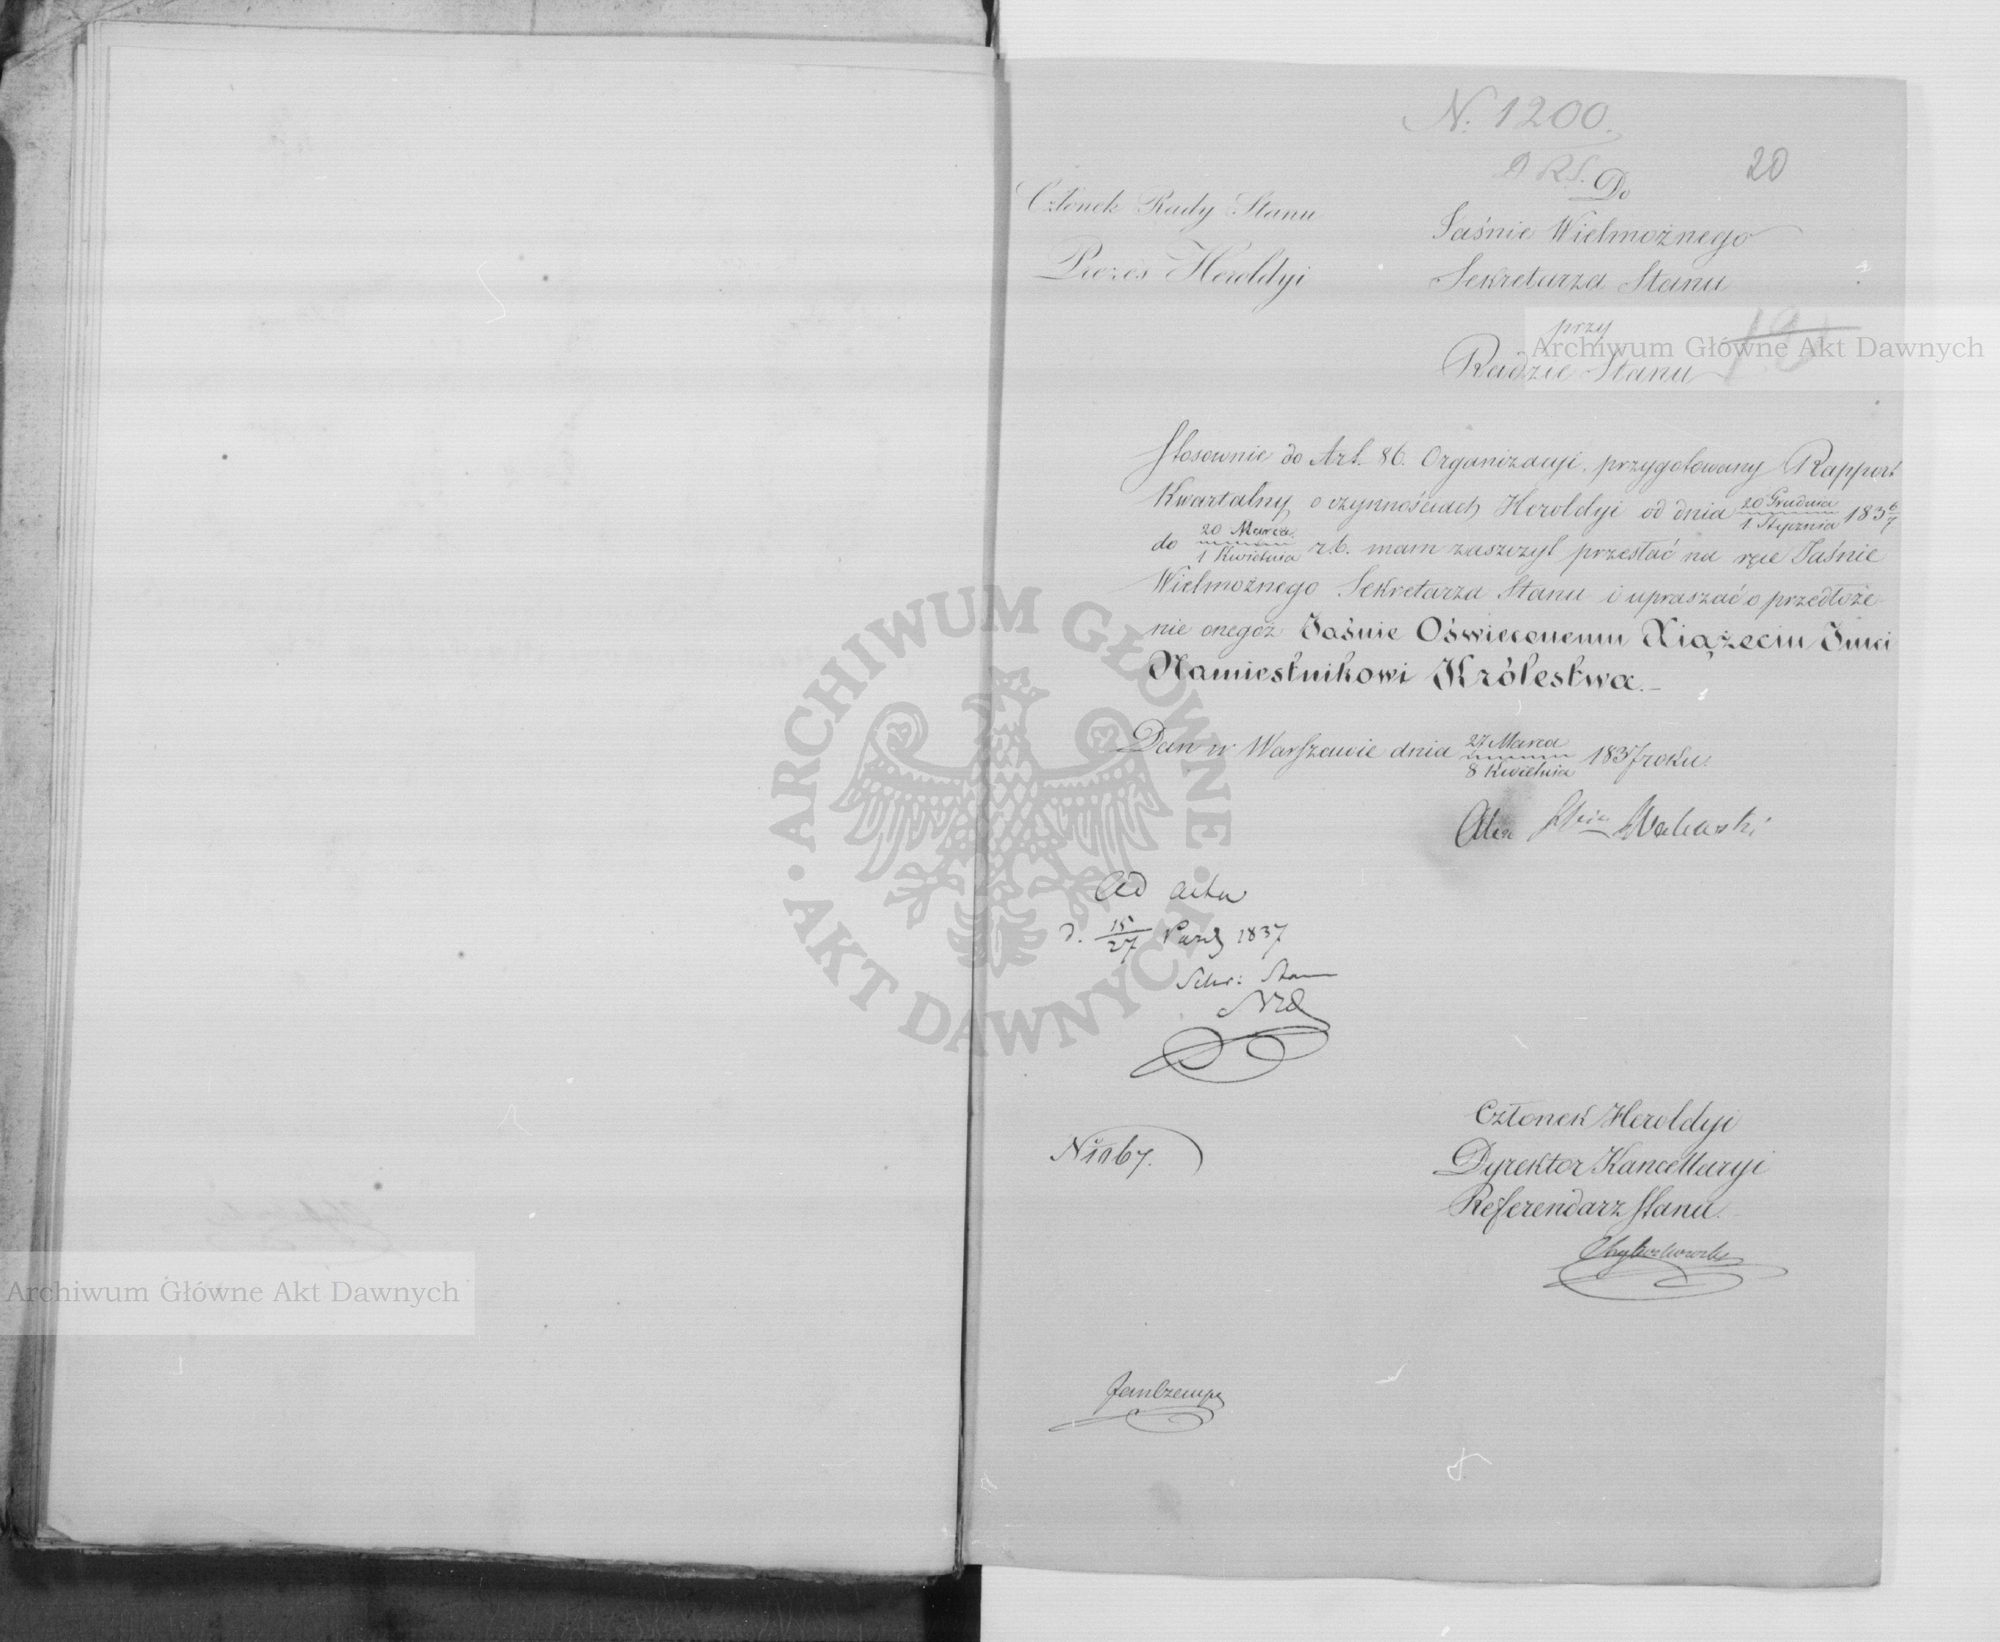 N. 1200.
D. R.S.
20
Członek Rady Stanu
Prezes Heroldyi
Do
Jaśnie Wielmożnego
Sekretarza Stanu
przy
Radzie Stanu
Stosownie do Art. 86. Organizacyi, przygotowany Rapport
Kwartalny o czynnościach Heroldyi od dnia 20 Grudnia / 1 Stycznia 1836/7
do 20 Marca / 1 Kwietnia r.b. mam zaszczyt przesłać na ręce Jaśnie
Wielmożnego Sekretarza Stanu i upraszać o przedłoże-
nie onegoż Jaśnie Oświeconemu Xiążęciu Jmci
Namiestnikowi Królestwa.
Dan w Warszawie dnia 27 Marca / 8 Kwietnia 1837 roku.
Alex Walewski
Ad acta
d. 15/27 Paźd 1837
Sekr: Stanu
N 1067.
Członek Heroldyi
Dyrektor Kancellaryi
Referendarz Stanu.
Jan Czempe
Archiwum Główne Akt Dawnych
ARCHIWUM GŁÓWNE AKT DAWNYCH
Archiwum Główne Akt Dawnych